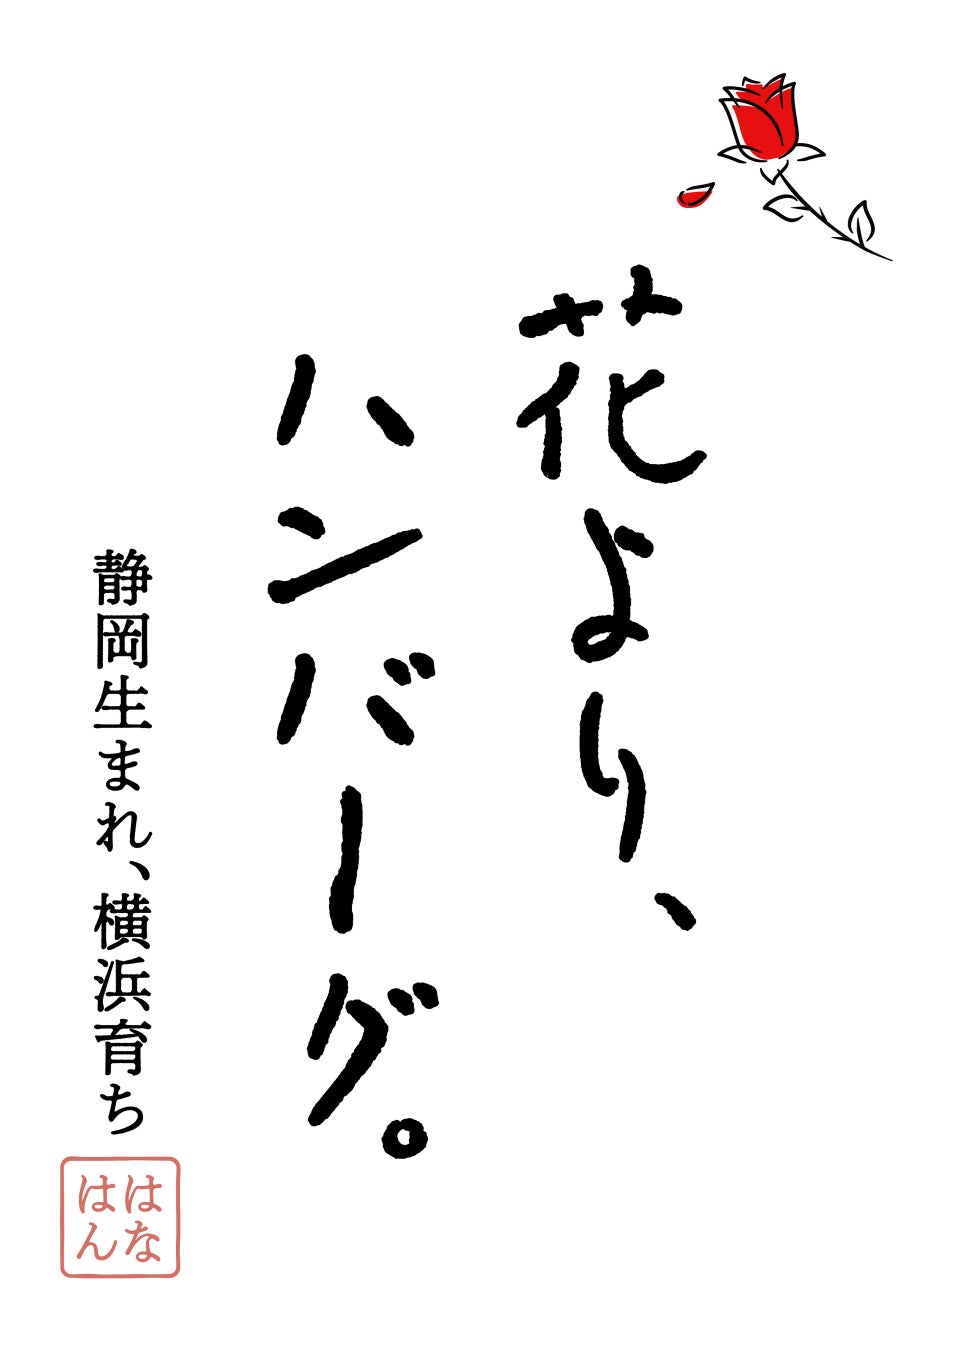 花より、
ハンバーグ。
静岡生まれ、横浜育ち
はな
はん